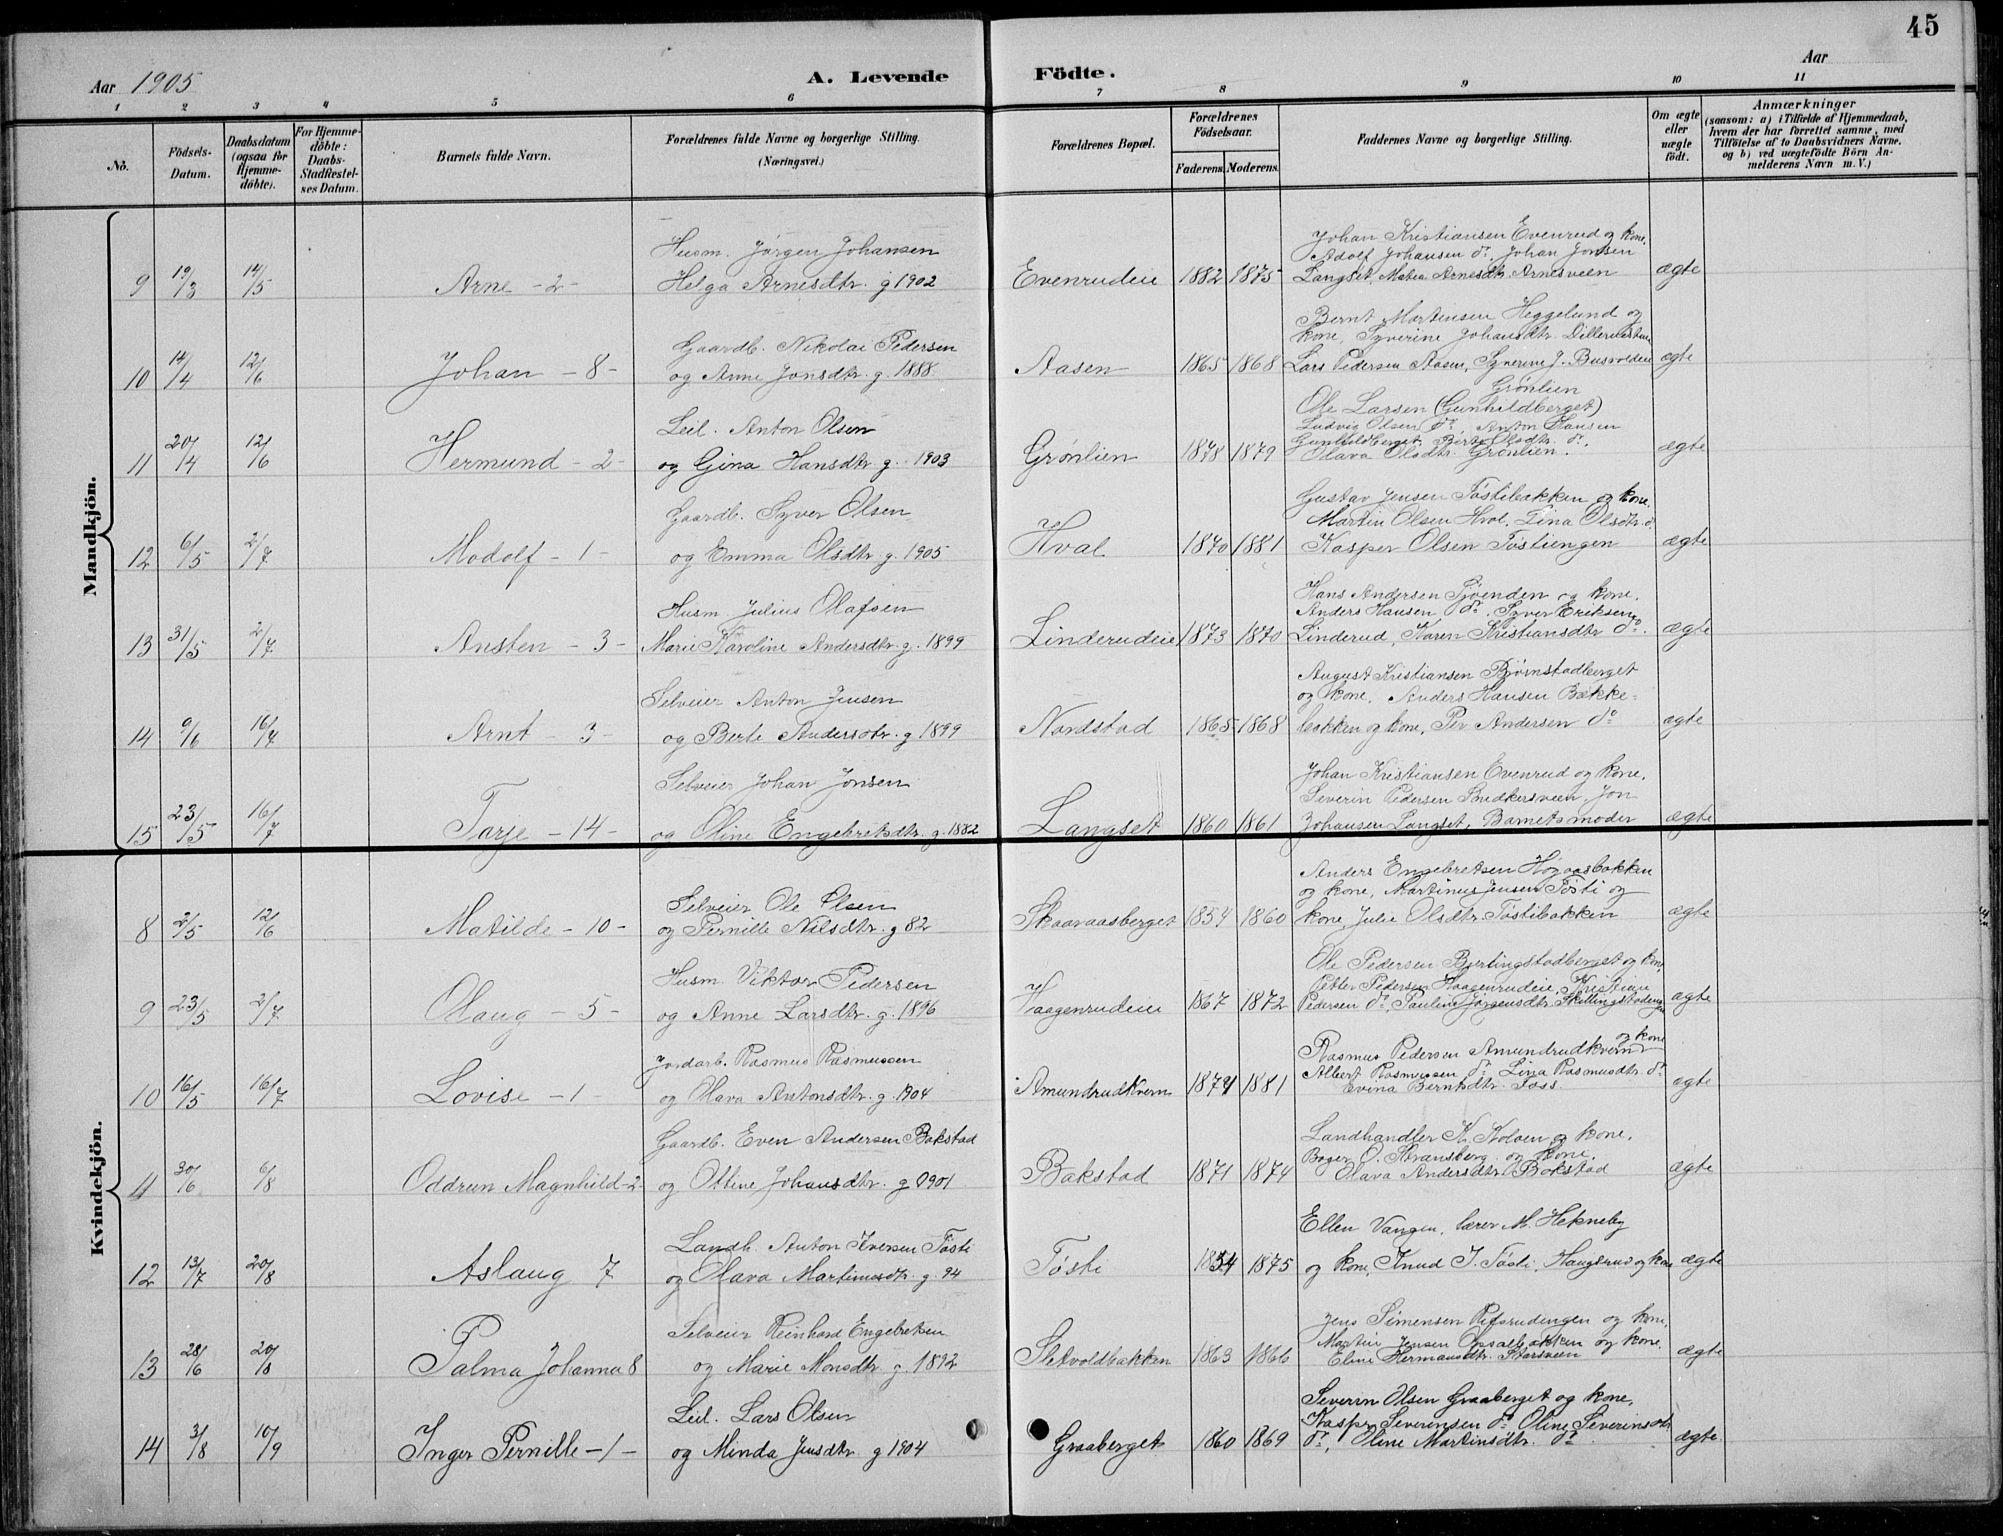 45
Aar 1905
A. Levende Födte.
Aar
1 2 3 4 5 6 7 8 9 10 11
No.
Födsels-Datum.
Daabsdatum (ogsaa för Hjemmedöbte).
For Hjemmedöbte: Daabs-Stadfestelses Datum.
Barnets fulde Navn.
Forældrenes fulde Navne og borgerlige Stilling. (Næringsvei.)
Forældrenes Bopæl.
Forældrenes Födselsaar.
Faderens. Moderens.
Faddernes Navne og borgerlige Stilling.
Om ægte eller uægte födt.
Anmærkninger
(saasom: a) i Tilfælde af Hjemmedaab, hvem der har forrettet samme, med Tilföielse af to Daabsvidners Navne, og b) ved uægtefödte Börn Anmelderens Navn m. V.)
Mandkjön.
9 19/3 14/5 Arne - 2 -
Husm. Jørgen Johansen
Helga Arnesdtr. g 1902
Evenrudeie 1882 1875
Johan Kristiansen Evenrud og kone,
Adolf Johansen do, Johan Jonsen
Langset, Matea Arnesdtr. Arnesveen
ægte
10 14/4 12/6 Johan - 8 -
Gaardb. Nikolai Pedersen
og Anne Jonsdtr. g. 1888
Aasen 1865 1868
Bernt Martinsen Heggelund og
kone, Syverine Johansdtr.
Lars Pedersen Aasen, Syverine J.
ægte
11 20/4 12/6 Hermund - 2 -
Leil. Anton Olsen
og Gina Hansdtr g. 1903
Grønlien 1878 1879
Grønlien
Ole Larsen (Gunhildberget)
Ludvig Olsen do, Anton Hansen
Gunhildberget, Berte Olsdtr. do.
Olava Olsdtr. Grønlien.
ægte
12 6/5 2/7 Modolf - 1 -
Gaardb. Syver Olsen
og Emma Olsdtr g. 1905
Hval 1870 1881
Gustav Jensen Tøstibakken og kone,
Martin Olsen Hval, Lina Olsdtr. do
Kasper Olsen Tøstiengen
ægte
13 31/5 2/7 Ansten - 3 -
Husm. Julius Olafsen
Marie Karoline Andersdtr. g. 1899
Linderudeie 1873 1870
Hans Andersen Sjøenden og kone,
Anders Hansen do, Syver Eriksen
Linderud, Karen Kristiansdtr do.
ægte
14 9/6 16/7 Arnt - 3 -
Selveier Anton Jensen
og Berte Andersdtr. g 1899
Nordstad 1865 1868
August Kristiansen Bjørnstadberget
og kone, Anders Hansen Bække-
bakken og kone, Per Andersen do
ægte
15 23/5 16/7 Tarje - 14 -
Selveier Johan Jonsen
og Oline Engebretsdtr. g. 1882
Langset 1860 1861
Johan Kristiansen Evenrud og kone,
Severin Pedersen Budkersveen, Jon
Johansen Langset, Barnets moder
ægte
Kvindekjön.
8 2/5 12/6 Matilde - 10 -
Selveier Ole Olsen
og Pernille Nilsdtr. g 82
Skaaraasberget 1854 1860
Anders Engebretsen Høgaasbakken
og kone, Martinus Jensen Tøsti og
kone, Julie Olsdtr. Tøstibakken
ægte
9 23/5 2/7 Olaug - 5 -
Husm. Viktor Pedersen
og Anne Larsdtr. g. 1896
Haagenrudeie 1867 1872
Ole Pedersen Bjertingstadberget og kone,
Petter Pedersen Haagenrudeie, Kristine
Pedersen do, Pauline Jørgensdtr. Skillingstadeng
ægte
10 16/5 16/7 Lovise - 1 -
Jordarb. Rasmus Rasmussen
og Olava Antonsdtr. g. 1904
Amundrudkvern 1874 1881
og kone
Rasmus Pedersen Amundrudkvern
Albert Rasmussen do Lina Rasmusdtr. do
Evina Berntsdtr. Foss
ægte
11 30/6 6/8 Oddrun Magnhild - 2 -
Gaardb. Even Andersen Bakstad
og Ottine Johansdtr. g 1901
Bakstad 1871 1874
Landhandler K. Kolven og kone,
Bager O. Stransberg og kone,
Olava Andersdtr. Bakstad
ægte
12 13/7 20/8 Aslaug 7
Landh. Anton Iversen Tøsti
og Olava Martinusdtr. g. 94
Tøsti 1854 1875
Ellen Vangen, lærer M. Hekneby
og kone, Knud I. Tøsti, Haugsrud og kone
ægte
13 28/6 20/8 Palma Johanna 8
Selveier Reinhard Engebretsen
og Marie Monsdtr. g. 1892
Sletvoldbakken 1863 1866
Jens Simensen Rifsrudengen og kone,
Martin Jensen Opsalbakken og kone,
Eline Hermansdtr. Storsveen
ægte
14 3/8 10/9 Inger Pernille - 1 -
Leil. Lars Olsen
og Minda Jensdtr. g 1904
Graaberget 1860 1869
Severin Olsen Graaberget og kone,
Kasper Severinsen do, Oline Severinsdtr.
do, Oline Martinsdtr. do
ægte